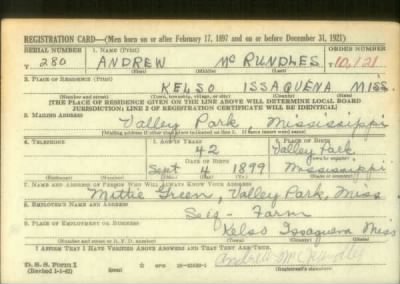 REGISTRATION CARD—(Men born on or after February 17, 1897 and on or before December 31, 1921)
SERIAL NUMBER 1. NAME (Print) ORDER NUMBER
T 280 ANDREW Mc RUNDLES T 10,121
(First) (Middle) (Last)
2. PLACE OF RESIDENCE (Print)
KELSO ISSAQUENA MISS.
(Number and street) (Town, township, village, or city) (County) (State)
[THE PLACE OF RESIDENCE GIVEN ON THE LINE ABOVE WILL DETERMINE LOCAL BOARD
JURISDICTION; LINE 2 OF REGISTRATION CERTIFICATE WILL BE IDENTICAL]
3. MAILING ADDRESS
Valley Park Mississippi
[Mailing address if other than place indicated on line 2. If same insert word same]
4. TELEPHONE 5. AGE IN YEARS 6. PLACE OF BIRTH
42 Valley Park
DATE OF BIRTH (Town or county)
Sept 4 1899 Mississippi
(Exchange) (Number) (Mo.) (Day) (Yr.) (State or country)
7. NAME AND ADDRESS OF PERSON WHO WILL ALWAYS KNOW YOUR ADDRESS
Mittie Green, Valley Park, Miss
8. EMPLOYER'S NAME AND ADDRESS
Self - Farm
9. PLACE OF EMPLOYMENT OR BUSINESS
Kelso Issaquena Miss
(Number and street or R. F. D. number) (Town) (County) (State)
I AFFIRM THAT I HAVE VERIFIED ABOVE ANSWERS AND THAT THEY ARE TRUE.
D. S. S. Form 1
(Revised 1-1-42) (over) GPO 16-21630-1 Andrew Mc Rundles
(Registrant's signature)